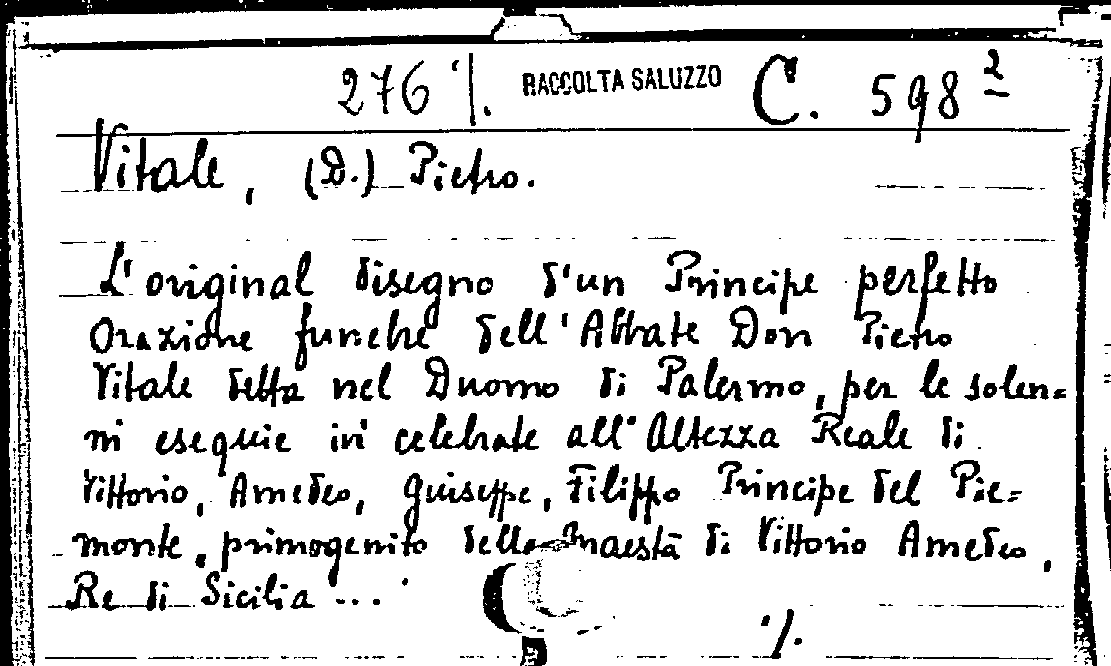 276 ·/. RACCOLTA SALUZZO C. 598²
Vitale, (D.) Pietro.
L'original disegno d'un Principe perfetto
Orazione funebre dell'Abbate Don Pietro
Vitale detta nel Duomo di Palermo, per le solen=
ni esequie ivi celebrate all'Altezza Reale di
Vittorio, Amedeo, Guiseppe, Filippo Principe del Pie=
monte, primogenito della Maestà di Vittorio Amedeo,
Re di Sicilia ...
·/.